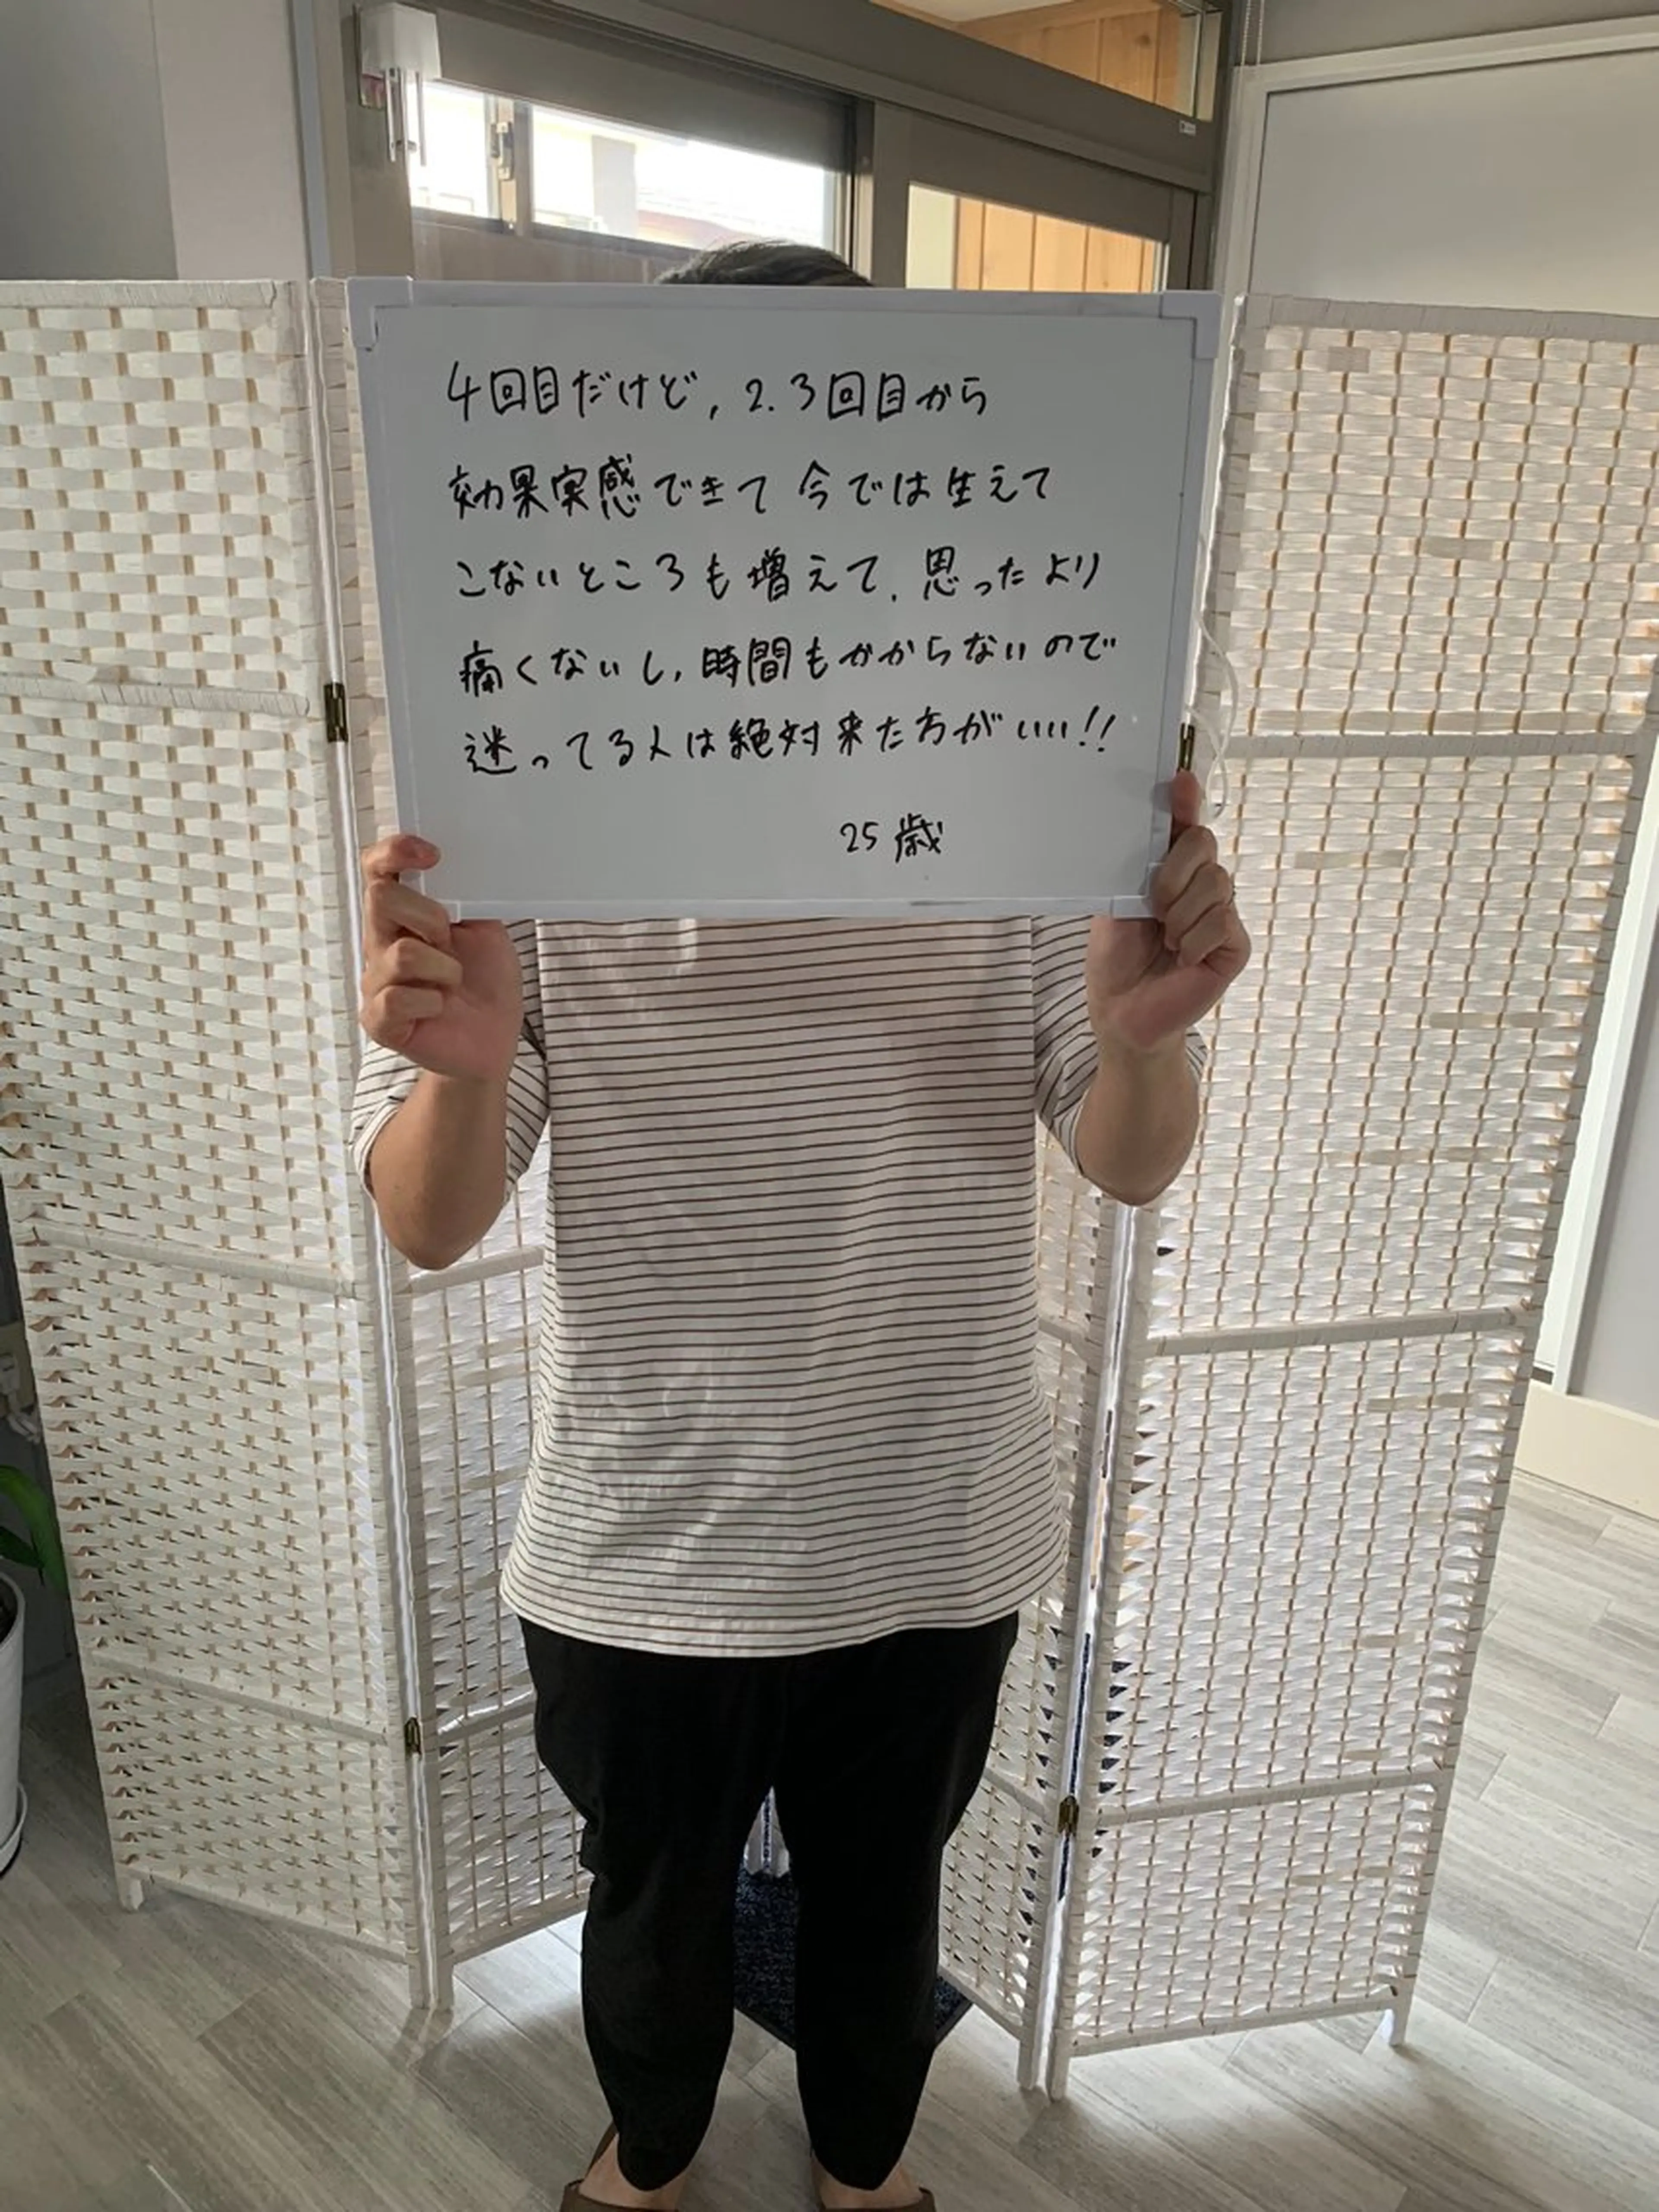 4回目だけど, 2.3回目から
効果実感できて 今では生えて
こないところも増えて. 思ったより
痛くないし, 時間もかからないので
迷ってる人は絶対来た方がいい!!
25歳